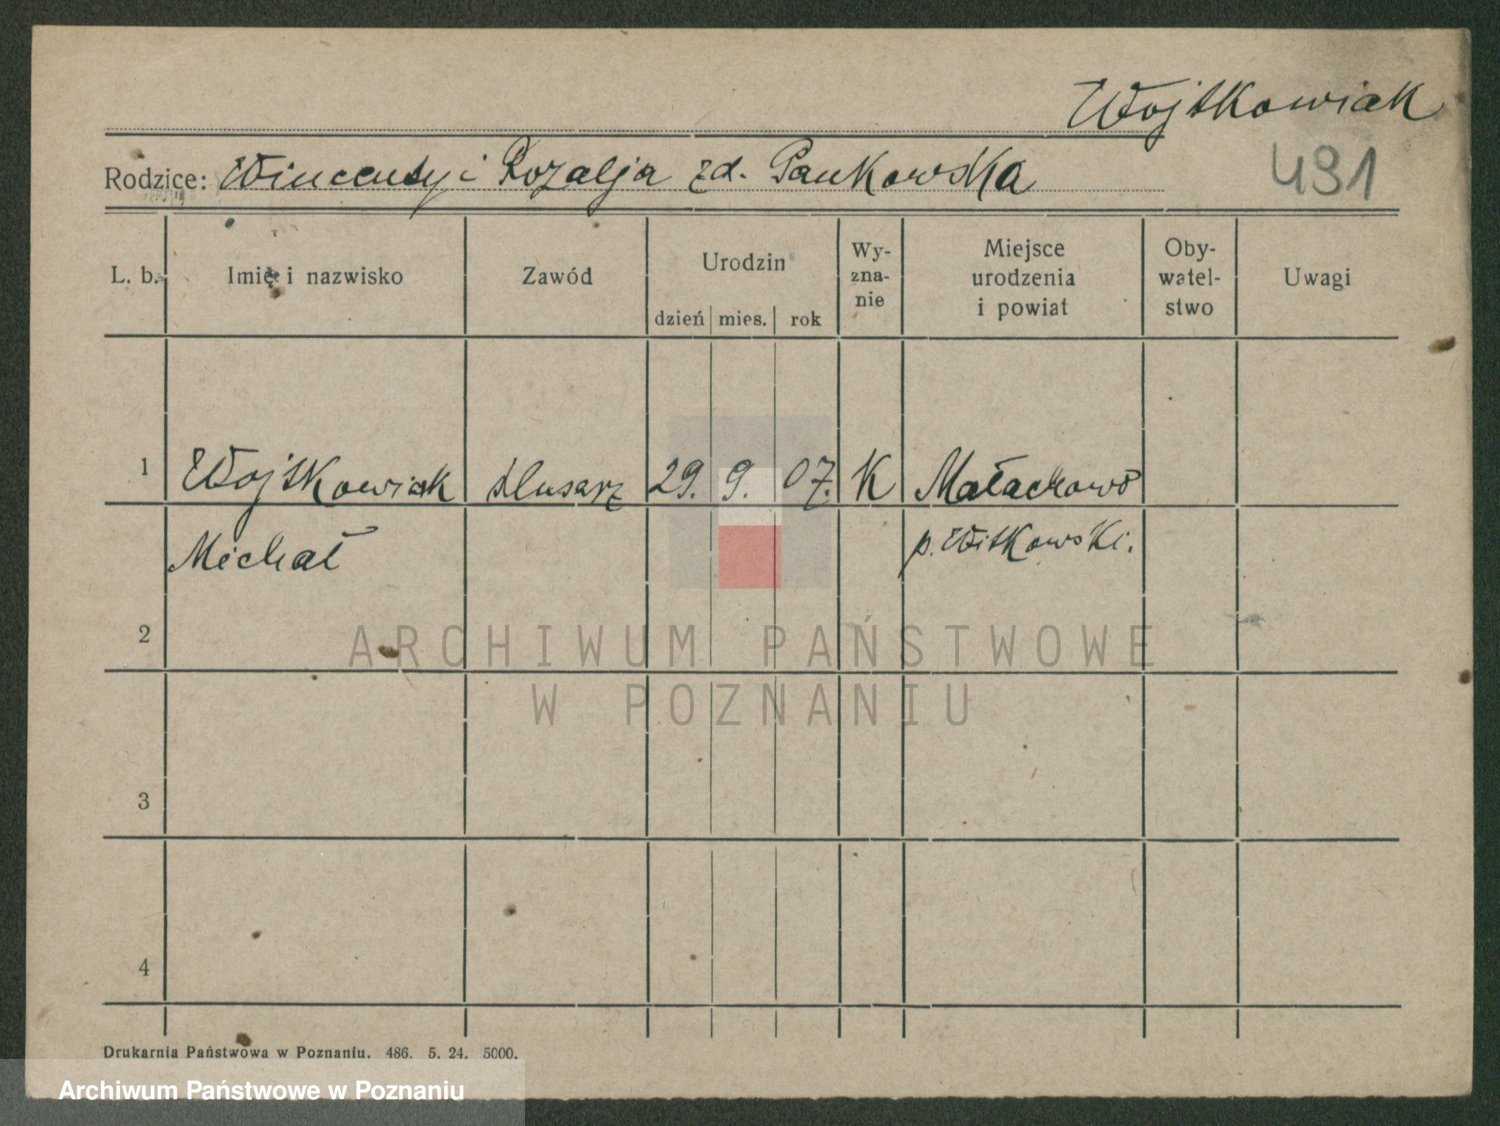 Wojtkowiak
Rodzice: Wincenty i Rozalja zd. Pankowska
491
L. b.
Imię i nazwisko
Zawód
Urodzin
dzień mies. rok
Wy-
zna-
nie
Miejsce
urodzenia
i powiat
Oby-
watel-
stwo
Uwagi
1 Wojtkowiak ślusarz 29. 9. 07. K Małachowo
Michał p. Witkowski.
2
3
4
ARCHIWUM PAŃSTWOWE
W POZNANIU
Drukarnia Państwowa w Poznaniu. 486. 5. 24. 5000.
Archiwum Państwowe w Poznaniu